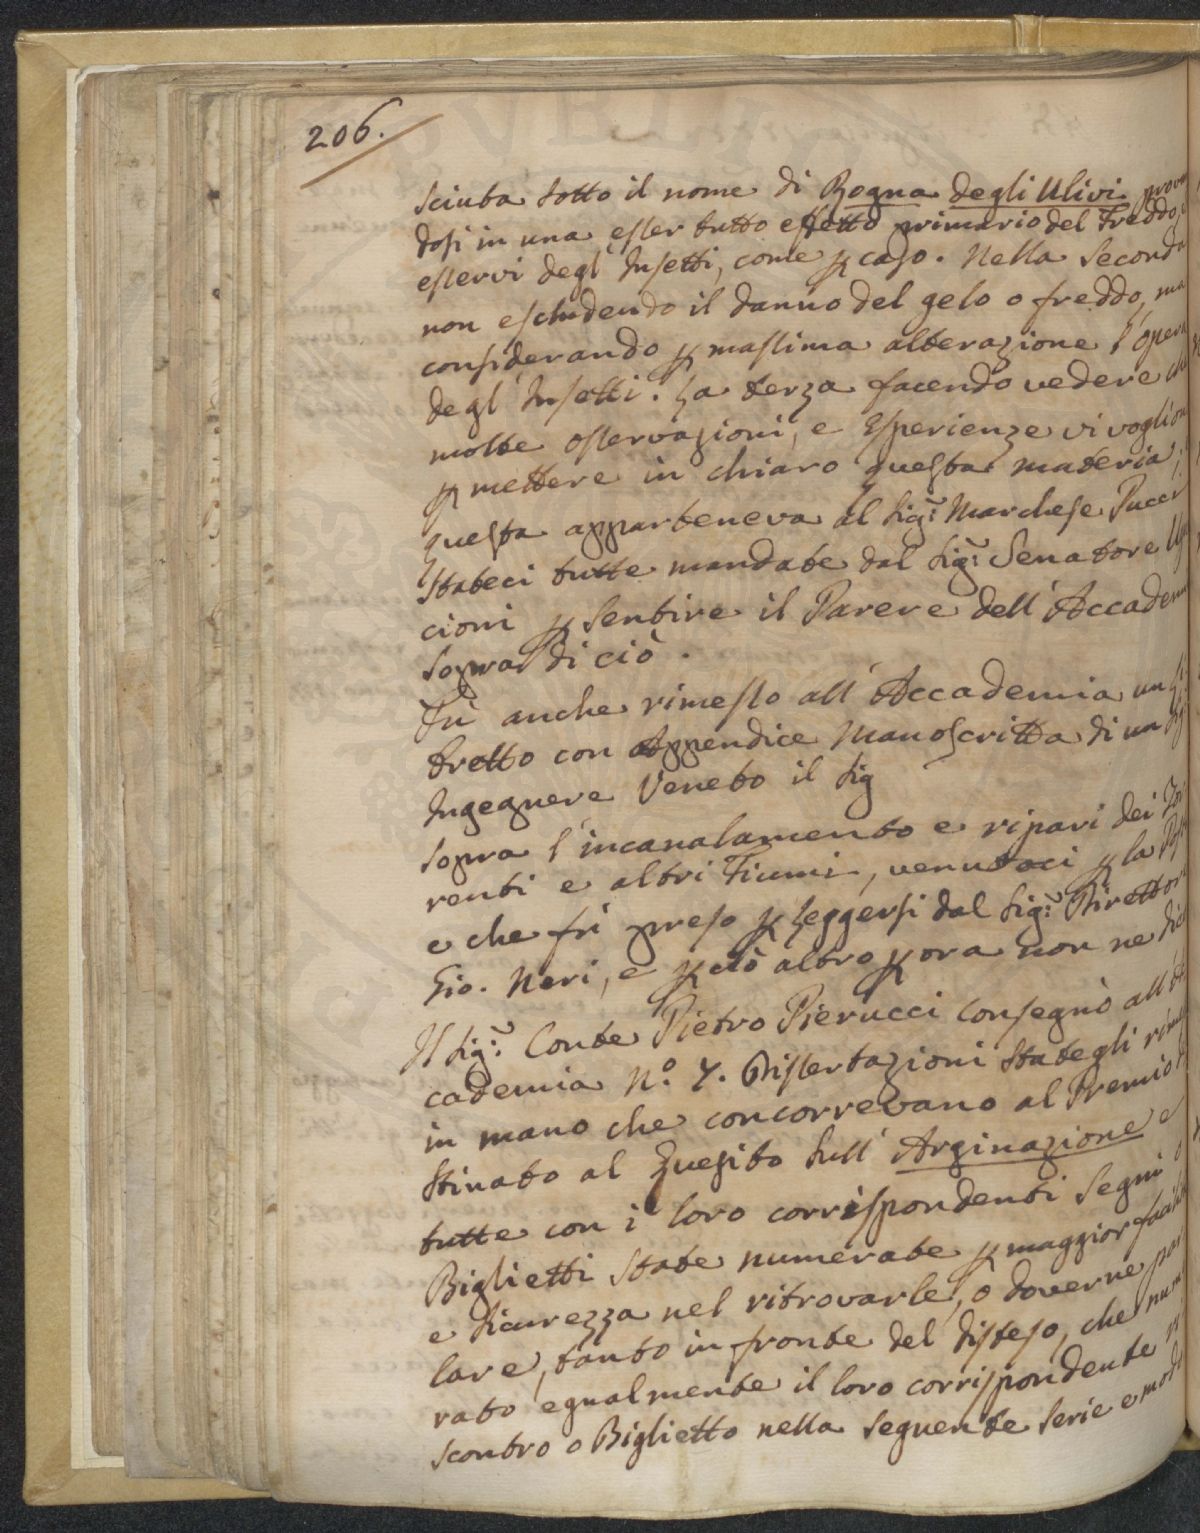 206.
sciuta sotto il nome di Rogna degli Ulivi
dosi in una esser tutto effetto primario del Freddo
esservi degl' Insetti, come p caso. Nella Seconda
non escludendo il danno del gelo o freddo, ma
considerando p massima alterazione l'opera
degl' Insetti. La terza facendo vedere che
molte osservazioni, e Esperienze vi voglion
p mettere in chiaro questa materia;
questa apparteneva al Sig.r Marchese Pucci
Stateci tutte mandate dal Sig.r Senatore
cioni p sentire il Parere dell'Accadem
sopra di ciò.
Fù anche rimesso all'Accademia un
tretto con Appendice Manoscritta di un
Ingegnere Veneto il Sig
sopra l'incanalamento e ripari dei Tor
renti e altri Fiumi, venutaci p la
e che fù preso p leggersi dal Sig.r Direttore
Gio. Neri, e p ciò altro p ora non ne
Il Sig.r Conte Pietro Pierucci consegnò all'
cademia N.° 7. Dissertazioni Stategli
in mano che concorrevano al Premio
stinato al Quesito sull'Arginazione e
tutte con i loro corrispondenti Segni
Biglietti State numerate p maggior
e sicurezza nel ritrovarle, o doverne par
lare, tanto in fronte del disteso, che num
rato egualmente il loro corrispondente
scontro o Biglietto nella seguente serie e modo